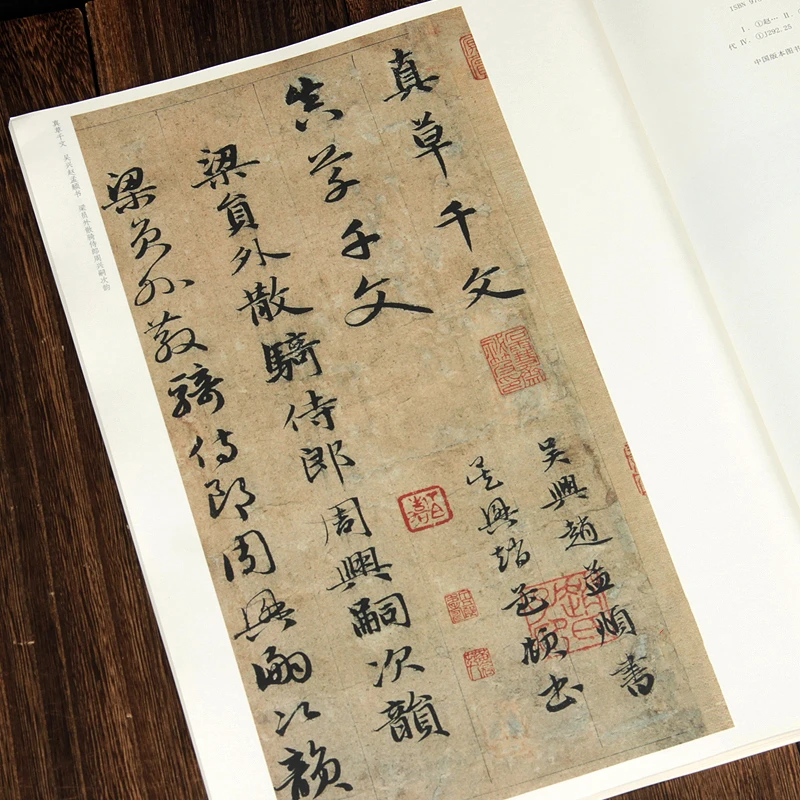 真草千文
真草千文
吴興趙孟頫書
吴興趙孟頫書
梁負外散騎侍郎周興嗣次韻
梁負外散騎侍郎周興嗣次韻
真草千文 吴兴赵孟頫书 梁员外散骑侍郎周兴嗣次韵
ISBN 97
Ⅰ. ①赵… Ⅱ.
代 Ⅳ. ①J292.25
中国版本图书